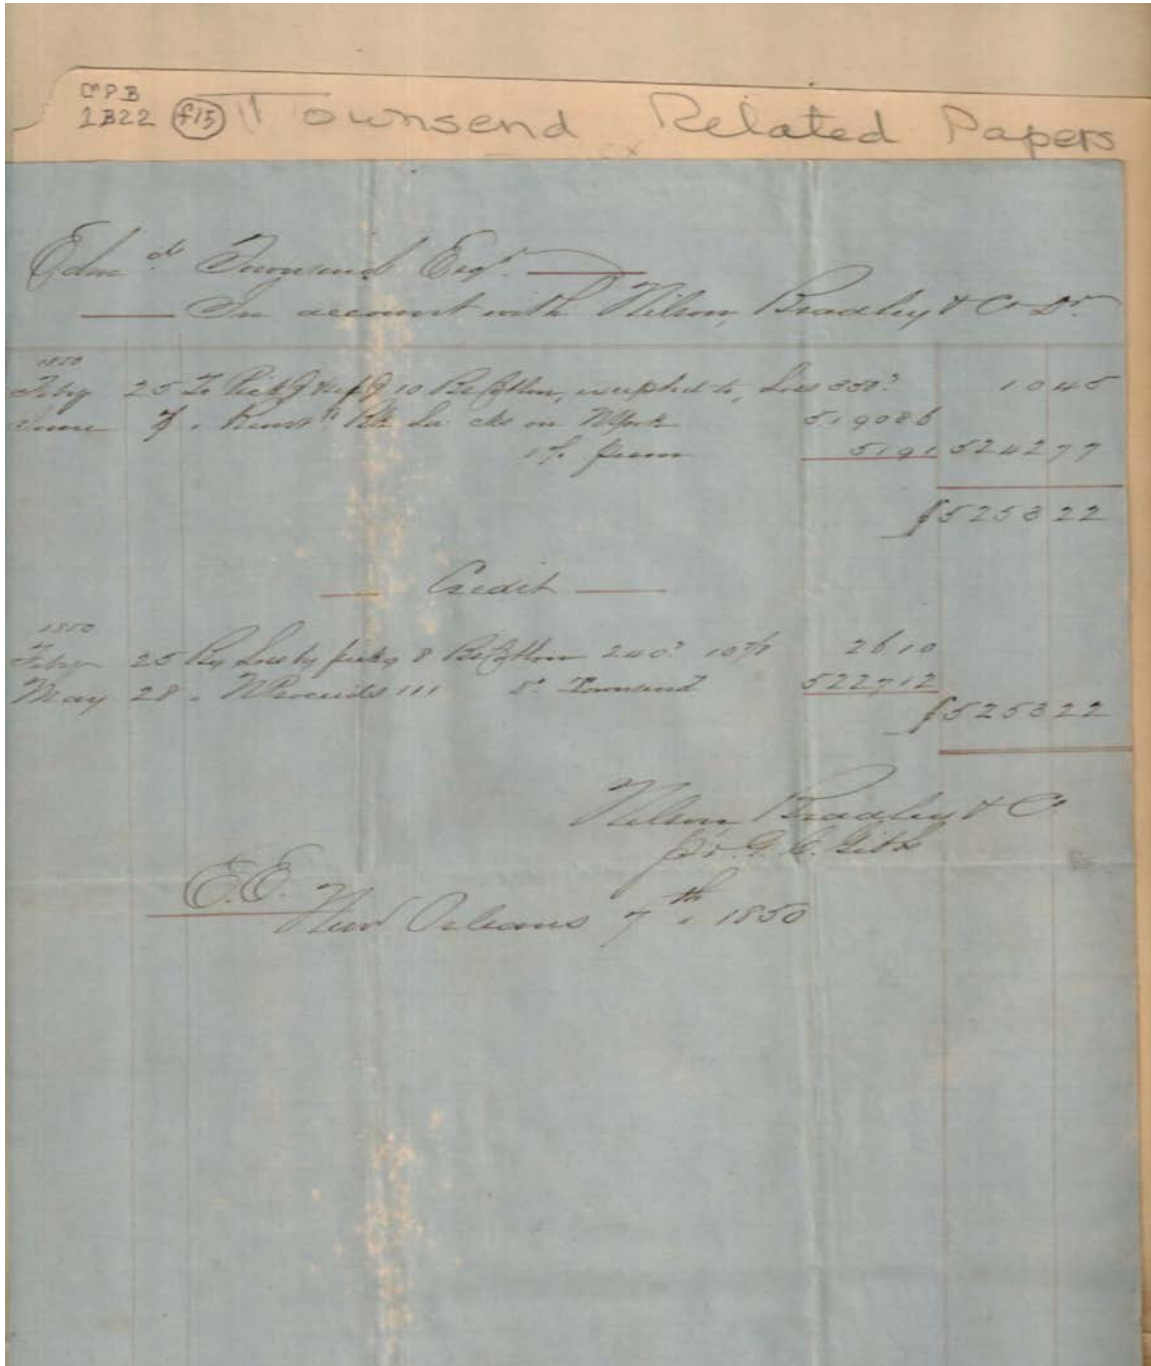 CPB
1B22 f15 Townsend Related Papers
Edmd. Townsend Esqr.
In account with Wilson, Bradley & Co Dr.
1850
Feby 25 To 10 Bs Cotton, 10 45
June 7 " Bk La cks on NYork 5190 86
1 % prem 51 91 5242 77
$5253 22
Credit
1850
Feby 25 By 8 Bs Cotton 240 10 7/8 26 10
May 28 " NProceeds 111 Townsend 5227 12
$5253 22
Wilson Bradley & Co
pr. G. C.
E.E.
New Orleans 7th. 1850